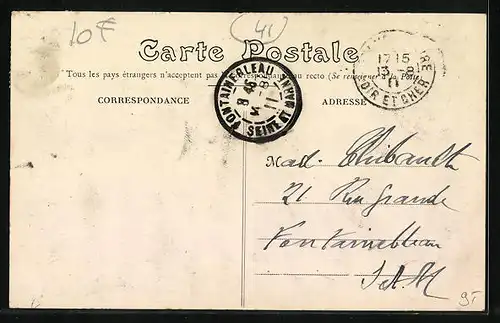 10F
(41)
Carte Postale
Tous les pays étrangers n'acceptent pas la correspondance au recto (Se renseigner à la Poste)
CORRESPONDANCE
ADRESSE
FONTAINEBLEAU
8 45
14 - 8
11
SEINE ET MARNE
17 15
13 - 8
11
LOIR ET CHER
Mad. Thibault
21 Rue Grande
Fontainebleau
S. & M